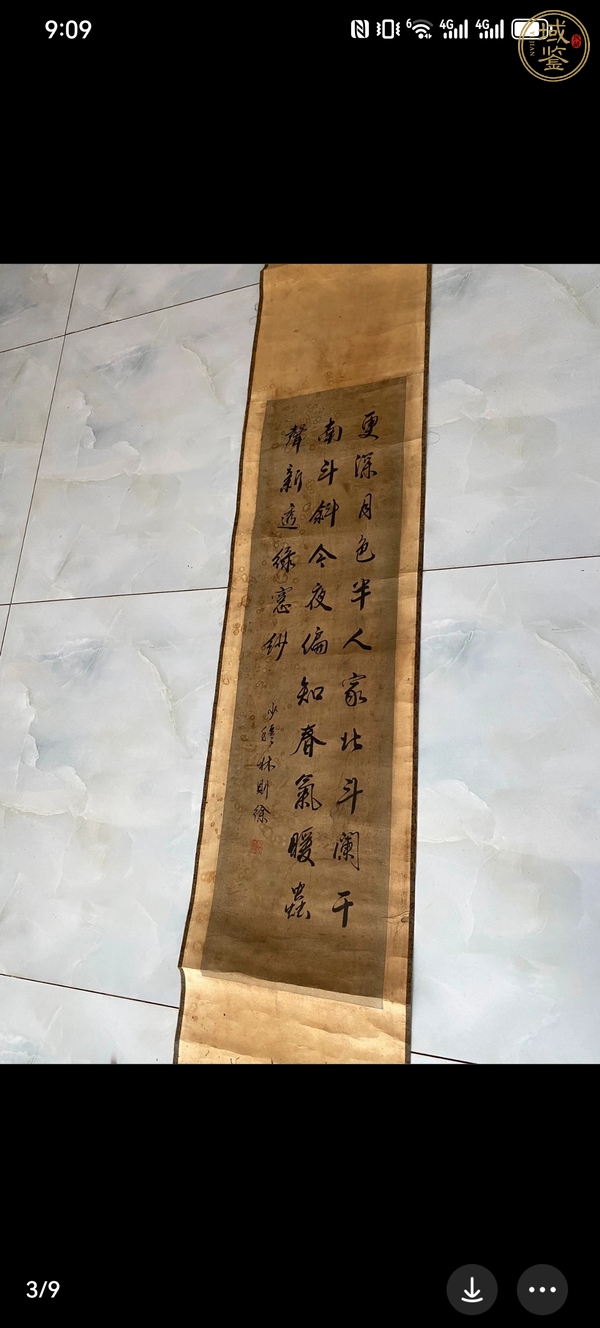 9:09
6 4G 4G
域鉴
更深月色半人家北斗闌干
南斗斜今夜偏知春氣暖蟲
聲新透綠窓紗
少穆林則徐
3/9